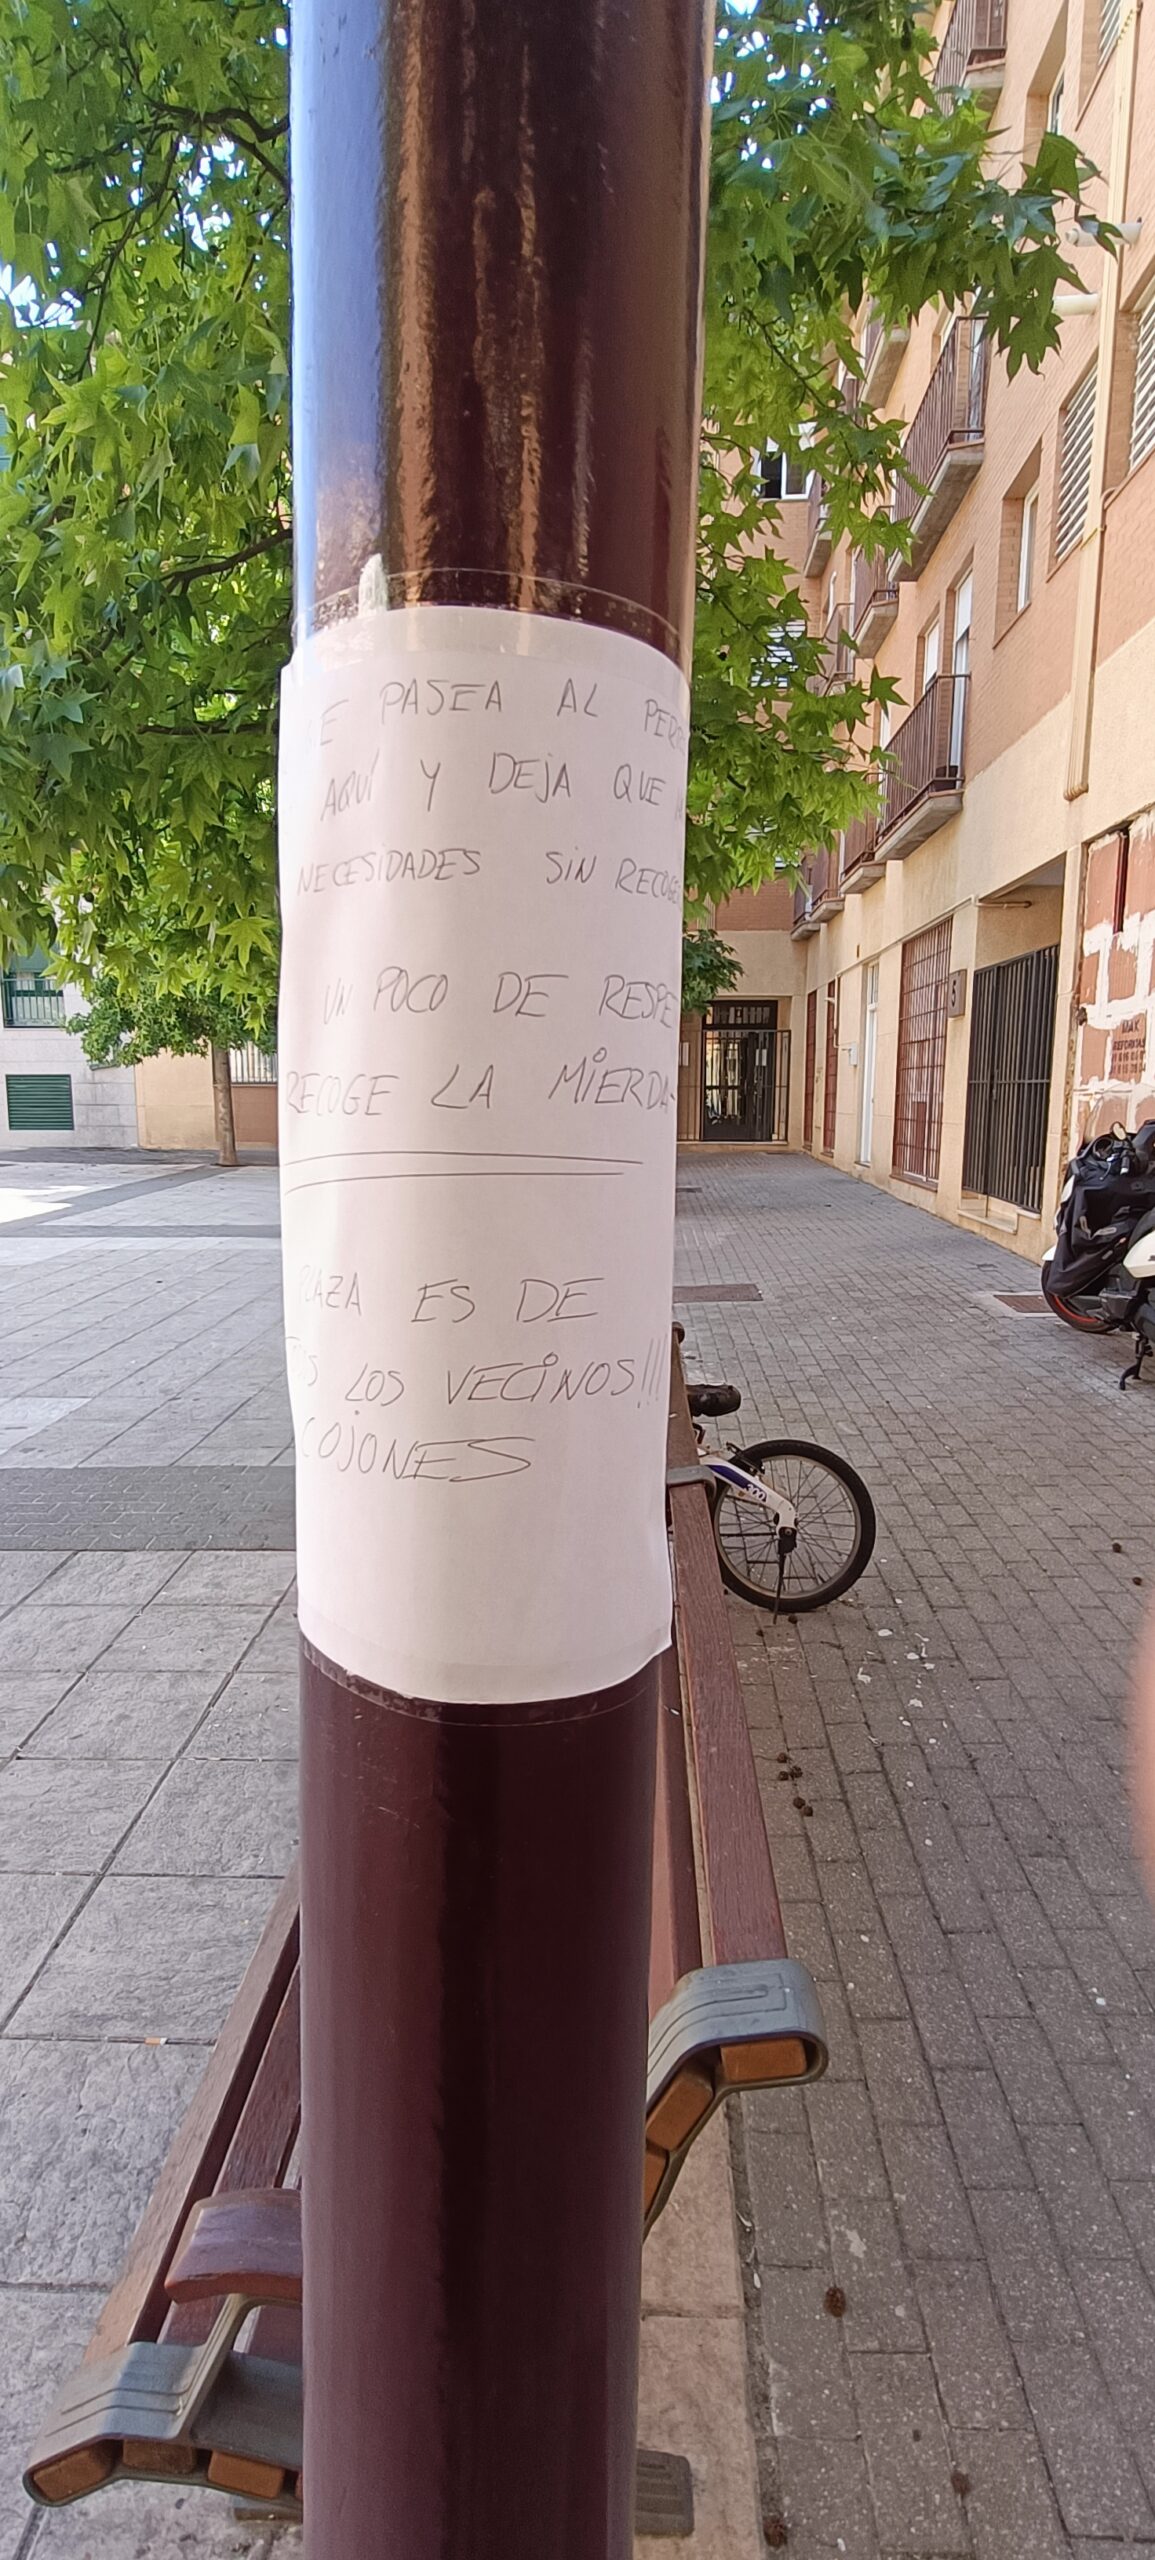 PASEA AL PERR
AQUÍ Y DEJA QUE
NECESIDADES SIN RECOGE
UN POCO DE RESPE
RECOGE LA MIERDA
PLAZA ES DE
LOS VECINOS!!!
COJONES
5
MAX
REFORMAS
300